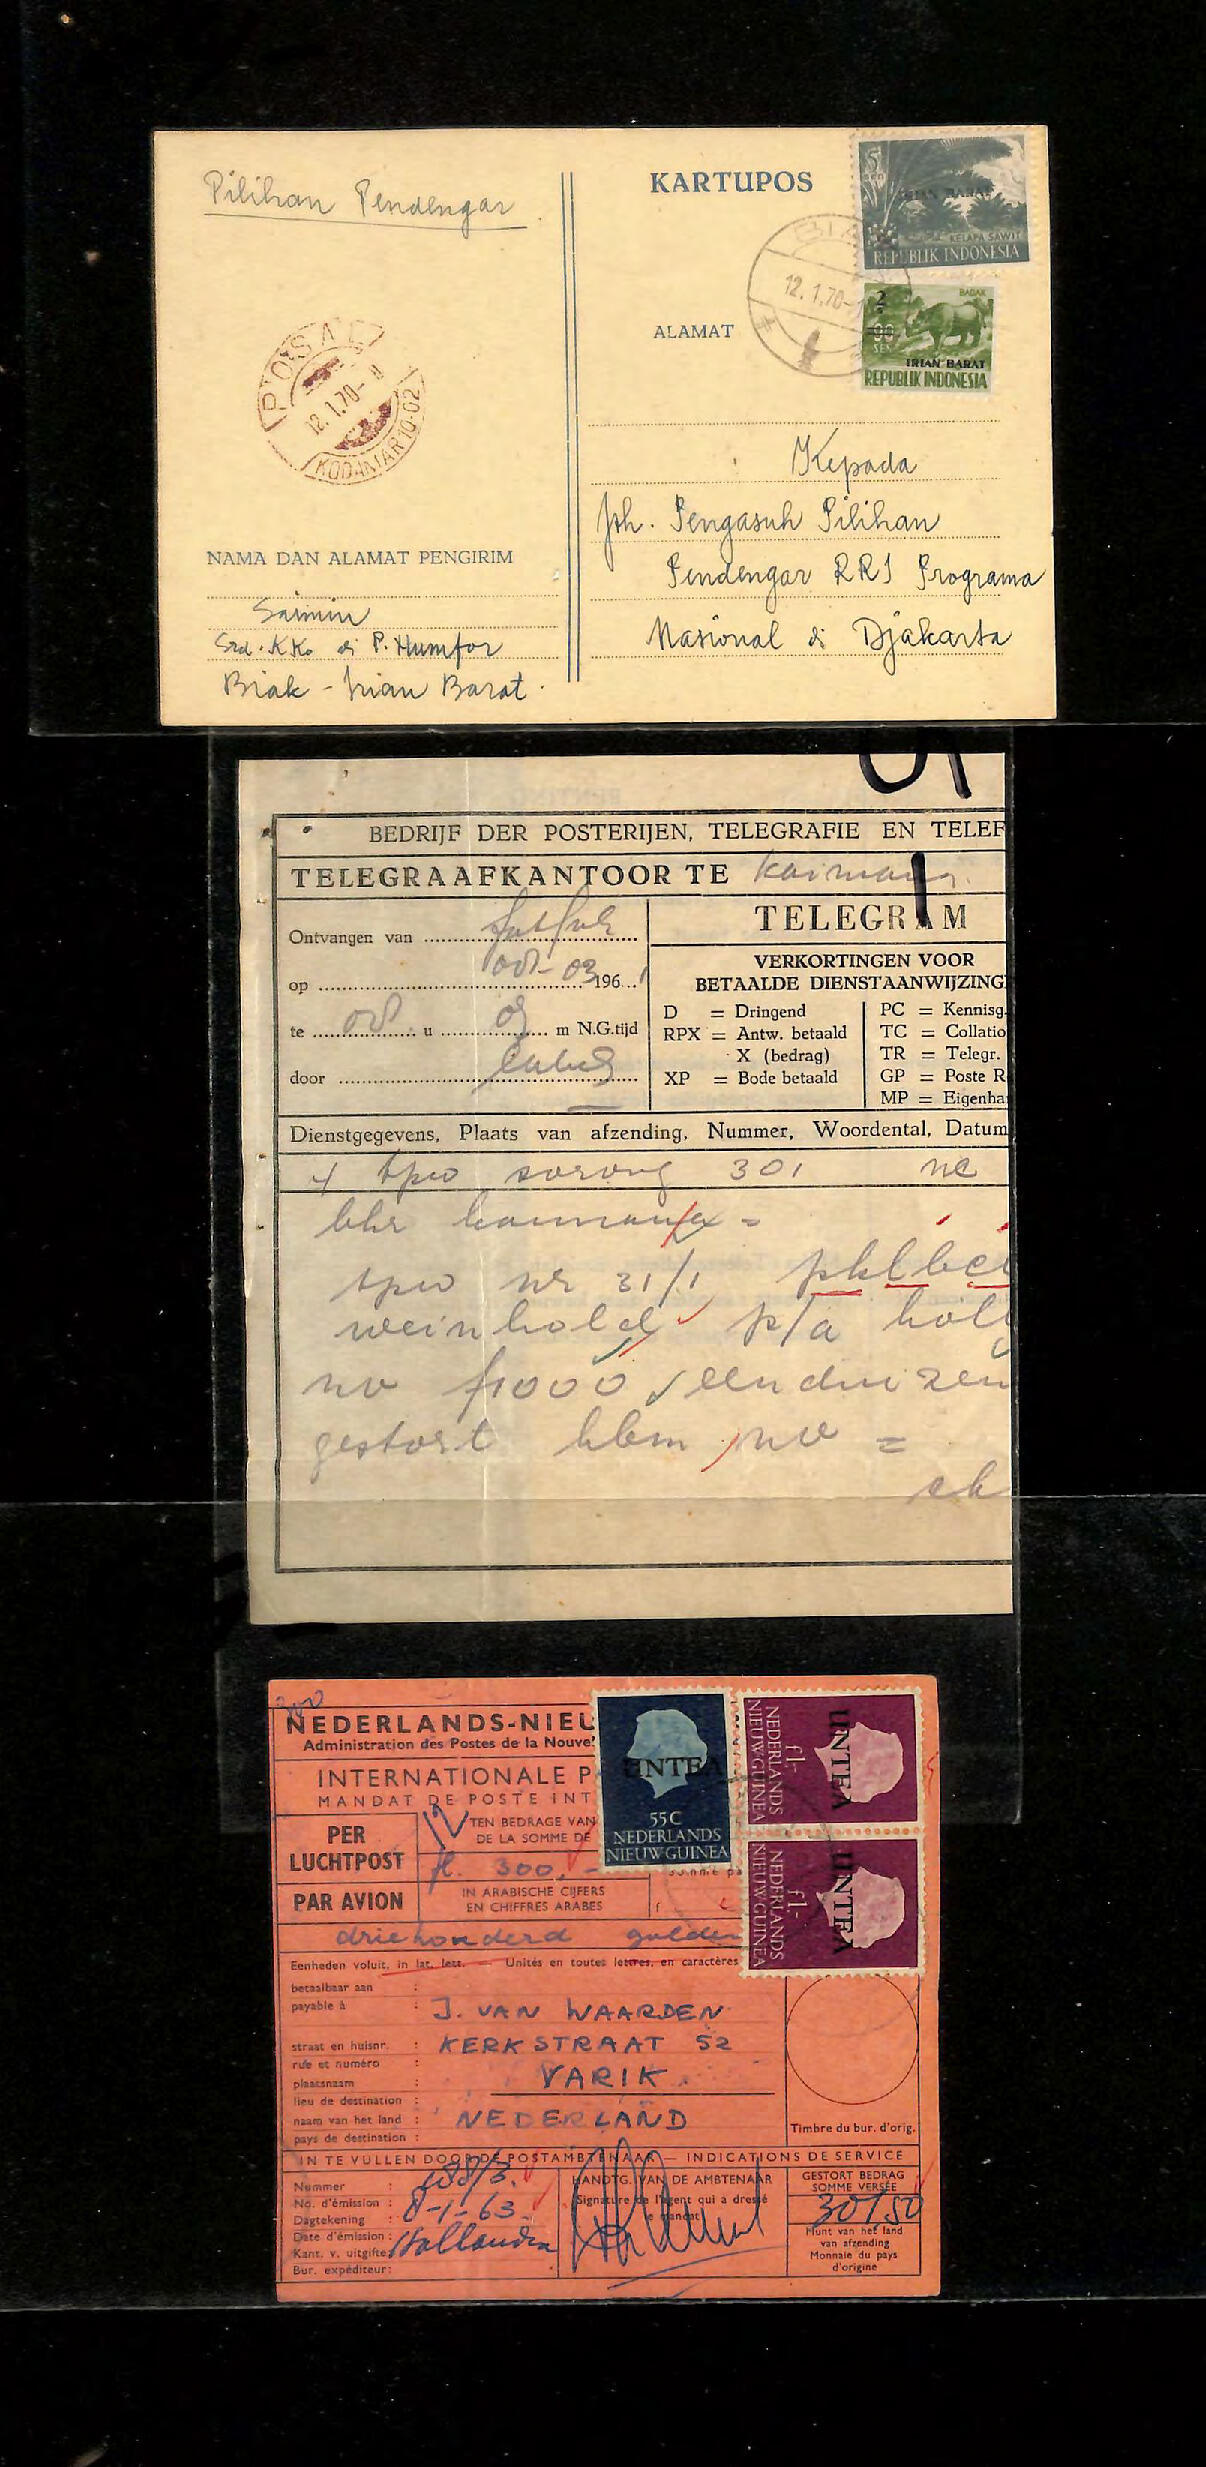 Pilihan Pendengar
KARTUPOS
5
SEN
IRIAN BARAT
KELAPA SAWIT
REPUBLIK INDONESIA
12.1.70-
2
BADAK
SEN
IRIAN BARAT
REPUBLIK INDONESIA
ALAMAT
12.1.70-
KODAMAR 10-02
Kepada
Jth. Pengasuh Pilihan
Pendengar RRI Programa
Nasional di Djakarta
NAMA DAN ALAMAT PENGIRIM
Saimin
Srd. KKo di P. Humfor
Biak - Irian Barat.
BEDRIJF DER POSTERIJEN, TELEGRAFIE EN TELEF
TELEGRAAFKANTOOR TE Kaimana.
TELEGRAM
Ontvangen van
op 196
te u m N.G.tijd
door
VERKORTINGEN VOOR
BETAALDE DIENSTAANWIJZING
D = Dringend
RPX = Antw. betaald
X (bedrag)
XP = Bode betaald
PC = Kennisg.
TC = Collatio
TR = Telegr.
GP = Poste R
MP = Eigenha
Dienstgegevens, Plaats van afzending, Nummer, Woordental, Datum
sorong 301
bhr kaimana =
tpw nr 31/1
weinhold p/a
nv f1000 eenduizen
gestort hbm nv =
300
NEDERLANDS-NIEU
Administration des Postes de la Nouve
INTERNATIONALE P
MANDAT DE POSTE INT
UNTEA
55C
NEDERLANDS
NIEUW-GUINEA
UNTEA
f1-
NEDERLANDS
NIEUW-GUINEA
UNTEA
f1-
NEDERLANDS
NIEUW-GUINEA
PER
LUCHTPOST
PAR AVION
12
TEN BEDRAGE VAN
DE LA SOMME DE
fl. 300,-
IN ARABISCHE CIJFERS
EN CHIFFRES ARABES
f
driehonderd gulden
Eenheden voluit, in lat. lett. — Unités en toutes lettres, en caractères
betaalbaar aan :
payable à : J. VAN WAARDEN
straat en huisnr. : KERKSTRAAT 52
rue et numéro :
plaatsnaam : VARIK.
lieu de destination :
naam van het land : NEDERLAND
pays de destination :
Timbre du bur. d'orig.
IN TE VULLEN DOOR DE POSTAMBTENAAR — INDICATIONS DE SERVICE
Nummer :
No. d'émission :
Dagtekening : 8-1-63.
Date d'émission :
Kant. v. uitgifte: Hollandia
Bur. expéditeur:
HANDTG. VAN DE AMBTENAAR
Signature de l'agent qui a dressé
le mandat
GESTORT BEDRAG
SOMME VERSÉE
301,50
Munt van het land
van afzending
Monnaie du pays
d'origine